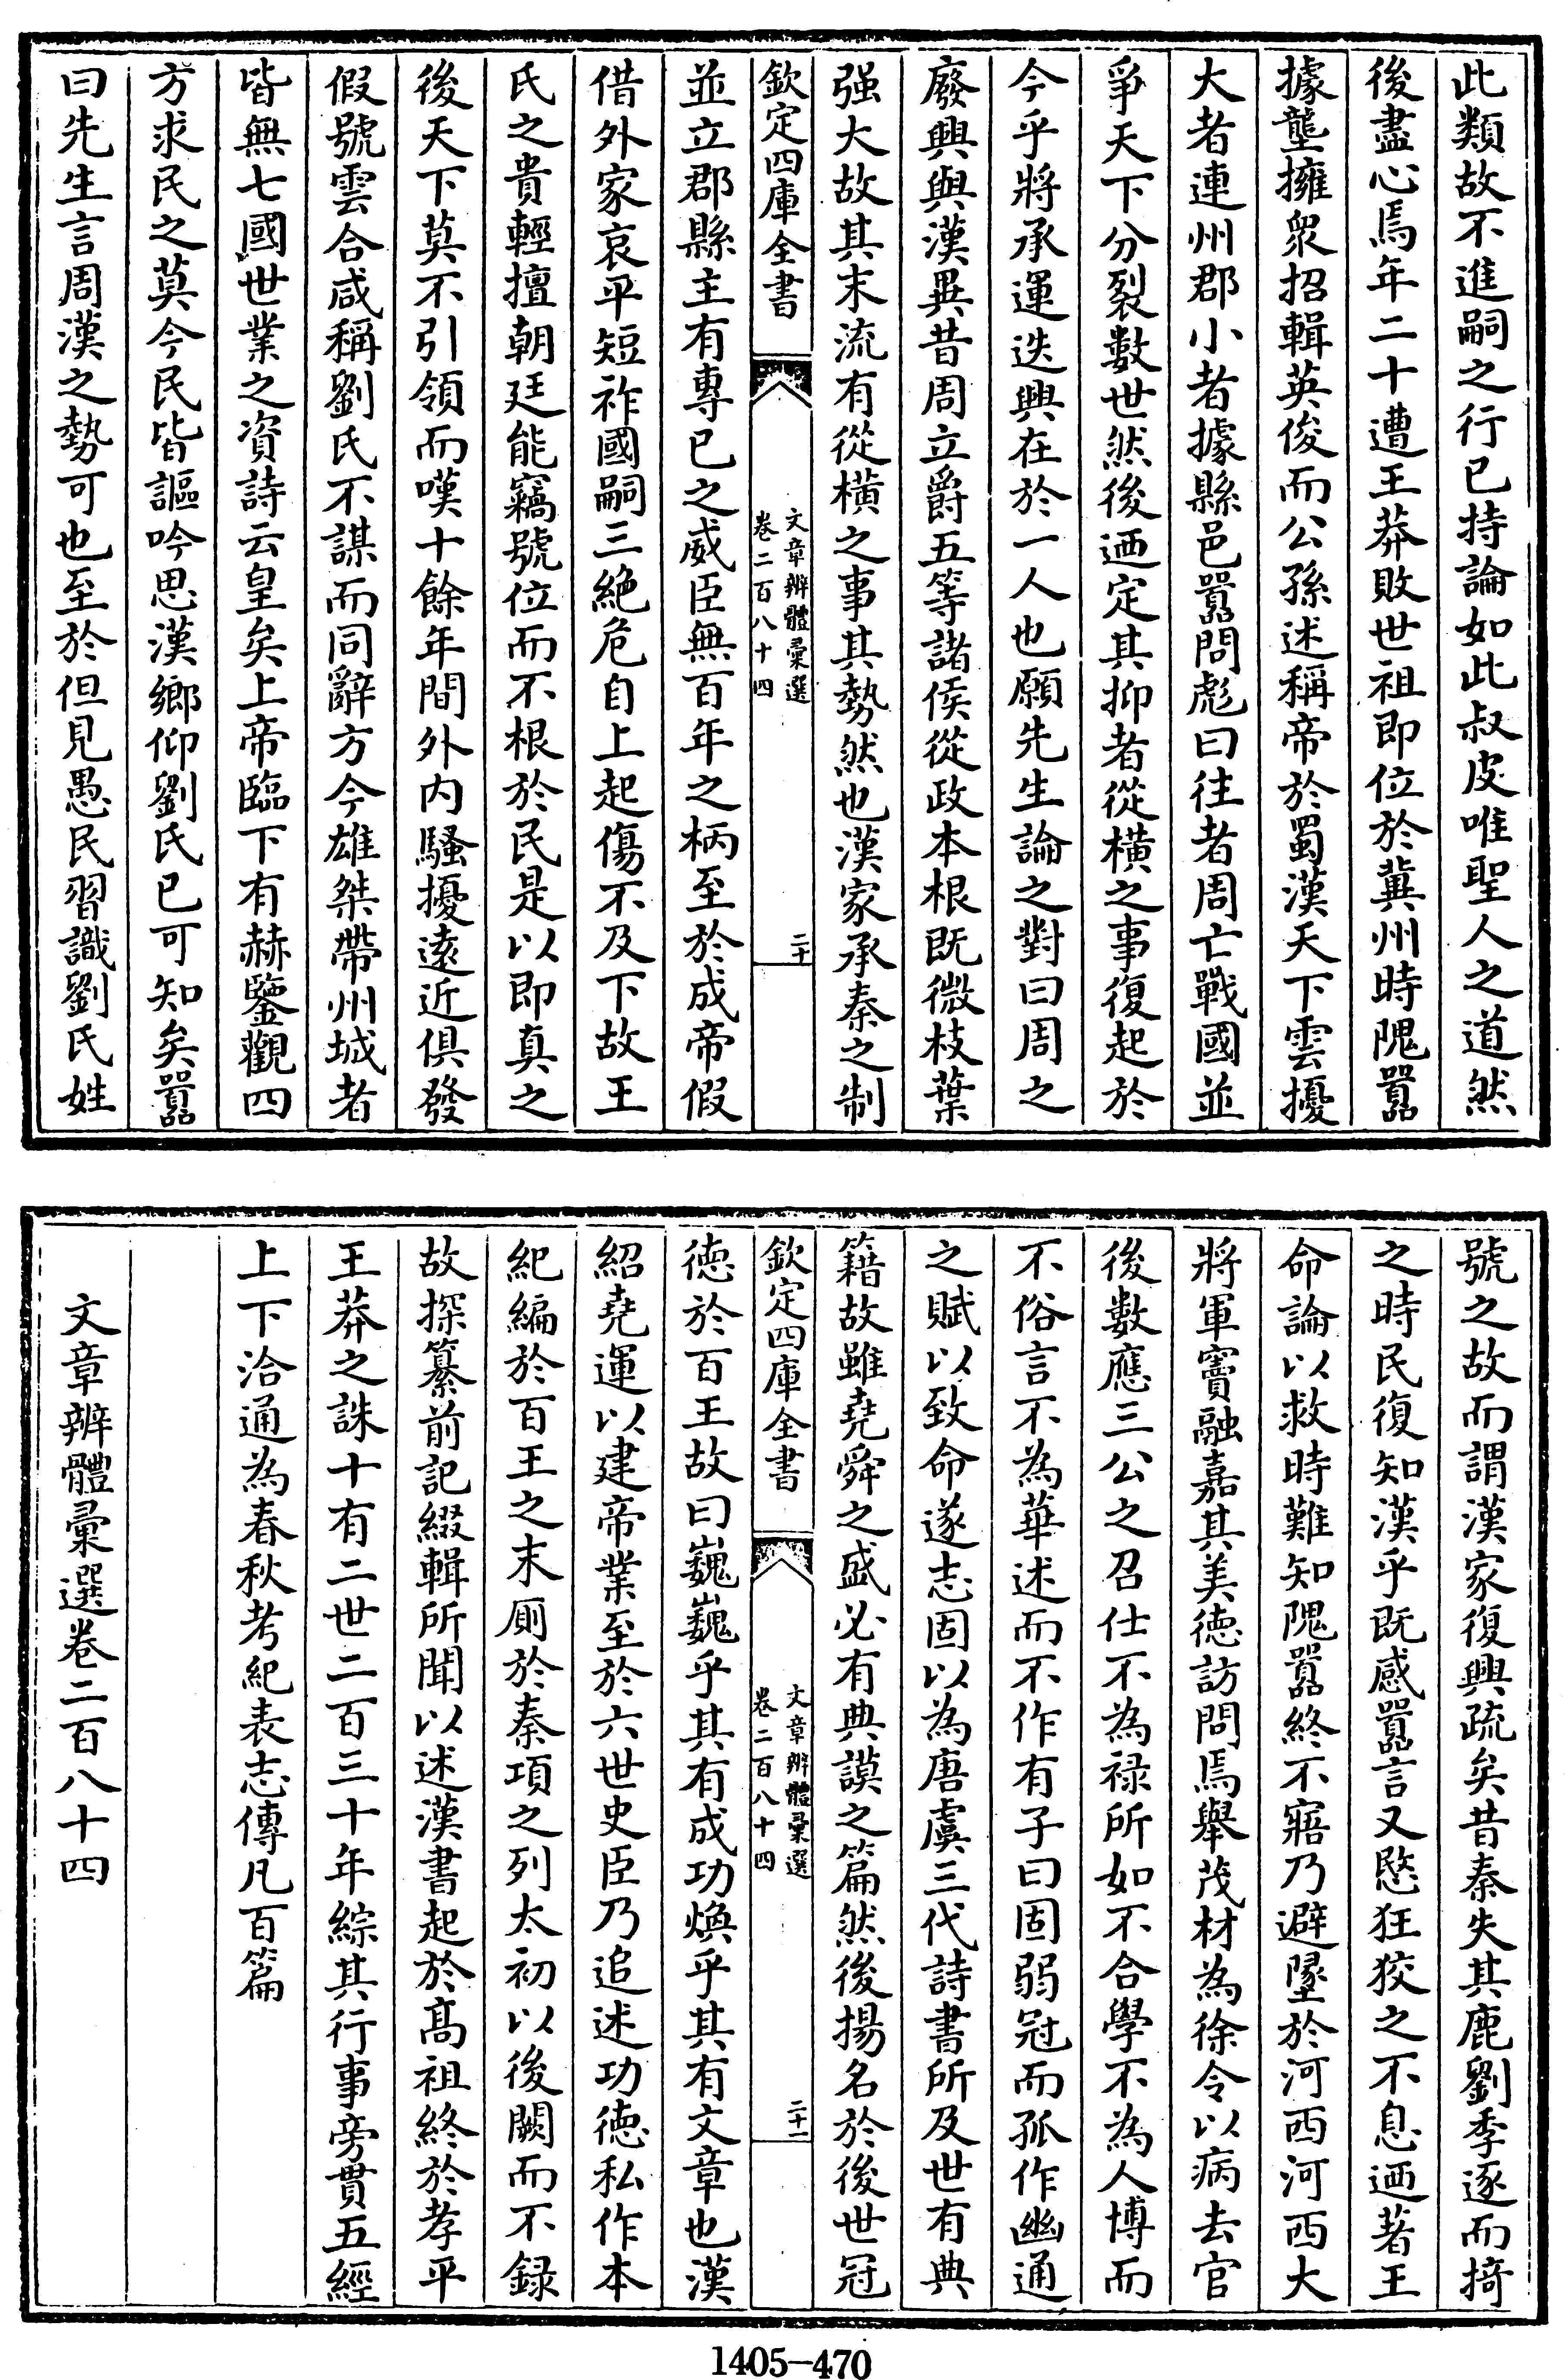 此類故不進嗣之行已持論如此叔皮唯聖人之道然
後盡心焉年二十遭王莽敗世祖即位於冀州時隗囂
據壟擁衆招輯英俊而公孫述稱帝於蜀漢天下雲擾
大者連州郡小者據縣邑囂問彪曰往者周亡戰國並
爭天下分裂數世然後迺定其抑者從橫之事復起於
今乎將承運迭興在於一人也願先生論之對曰周之
廢興與漢異昔周立爵五等諸侯從政本根既微枝葉
强大故其末流有從橫之事其勢然也漢家承秦之制
欽定四庫全書
文章辨體彙選
卷二百八十四
二十
並立郡縣主有專已之威臣無百年之柄至於成帝假
借外家哀平短祚國嗣三絶危自上起傷不及下故王
氏之貴輕擅朝廷能竊號位而不根於民是以即真之
後天下莫不引領而嘆十餘年間外内騷擾逺近俱發
假號雲合咸稱劉氏不謀而同辭方今雄桀帶州城者
皆無七國世業之資詩云皇矣上帝臨下有赫鑒觀四
方求民之莫今民皆謳吟思漢鄉仰劉氏已可知矣囂
曰先生言周漢之勢可也至於但見愚民習識劉氏姓
號之故而謂漢家復興疏矣昔秦失其鹿劉季逐而掎
之時民復知漢乎既感囂言又愍狂狡之不息迺著王
命論以救時難知隗囂終不寤乃避墬於河西河西大
將軍竇融嘉其美徳訪問焉舉茂材為徐令以病去官
後數應三公之召仕不為禄所如不合學不為人博而
不俗言不為華述而不作有子曰固弱冠而孤作幽通
之賦以致命遂志固以為唐虞三代詩書所及世有典
籍故雖堯舜之盛必有典謨之篇然後揚名於後世冠
欽定四庫全書
文章辨體彙選
卷二百八十四
二十一
徳於百王故曰巍巍乎其有成功煥乎其有文章也漢
紹堯運以建帝業至於六世史臣乃追述功徳私作本
紀編於百王之末厠於秦項之列太初以後闕而不録
故探纂前記綴輯所聞以述漢書起於髙祖終於孝平
王莽之誅十有二世二百三十年綜其行事旁貫五經
上下洽通為春秋考紀表志傳凡百篇
文章辨體彙選卷二百八十四
1405—470